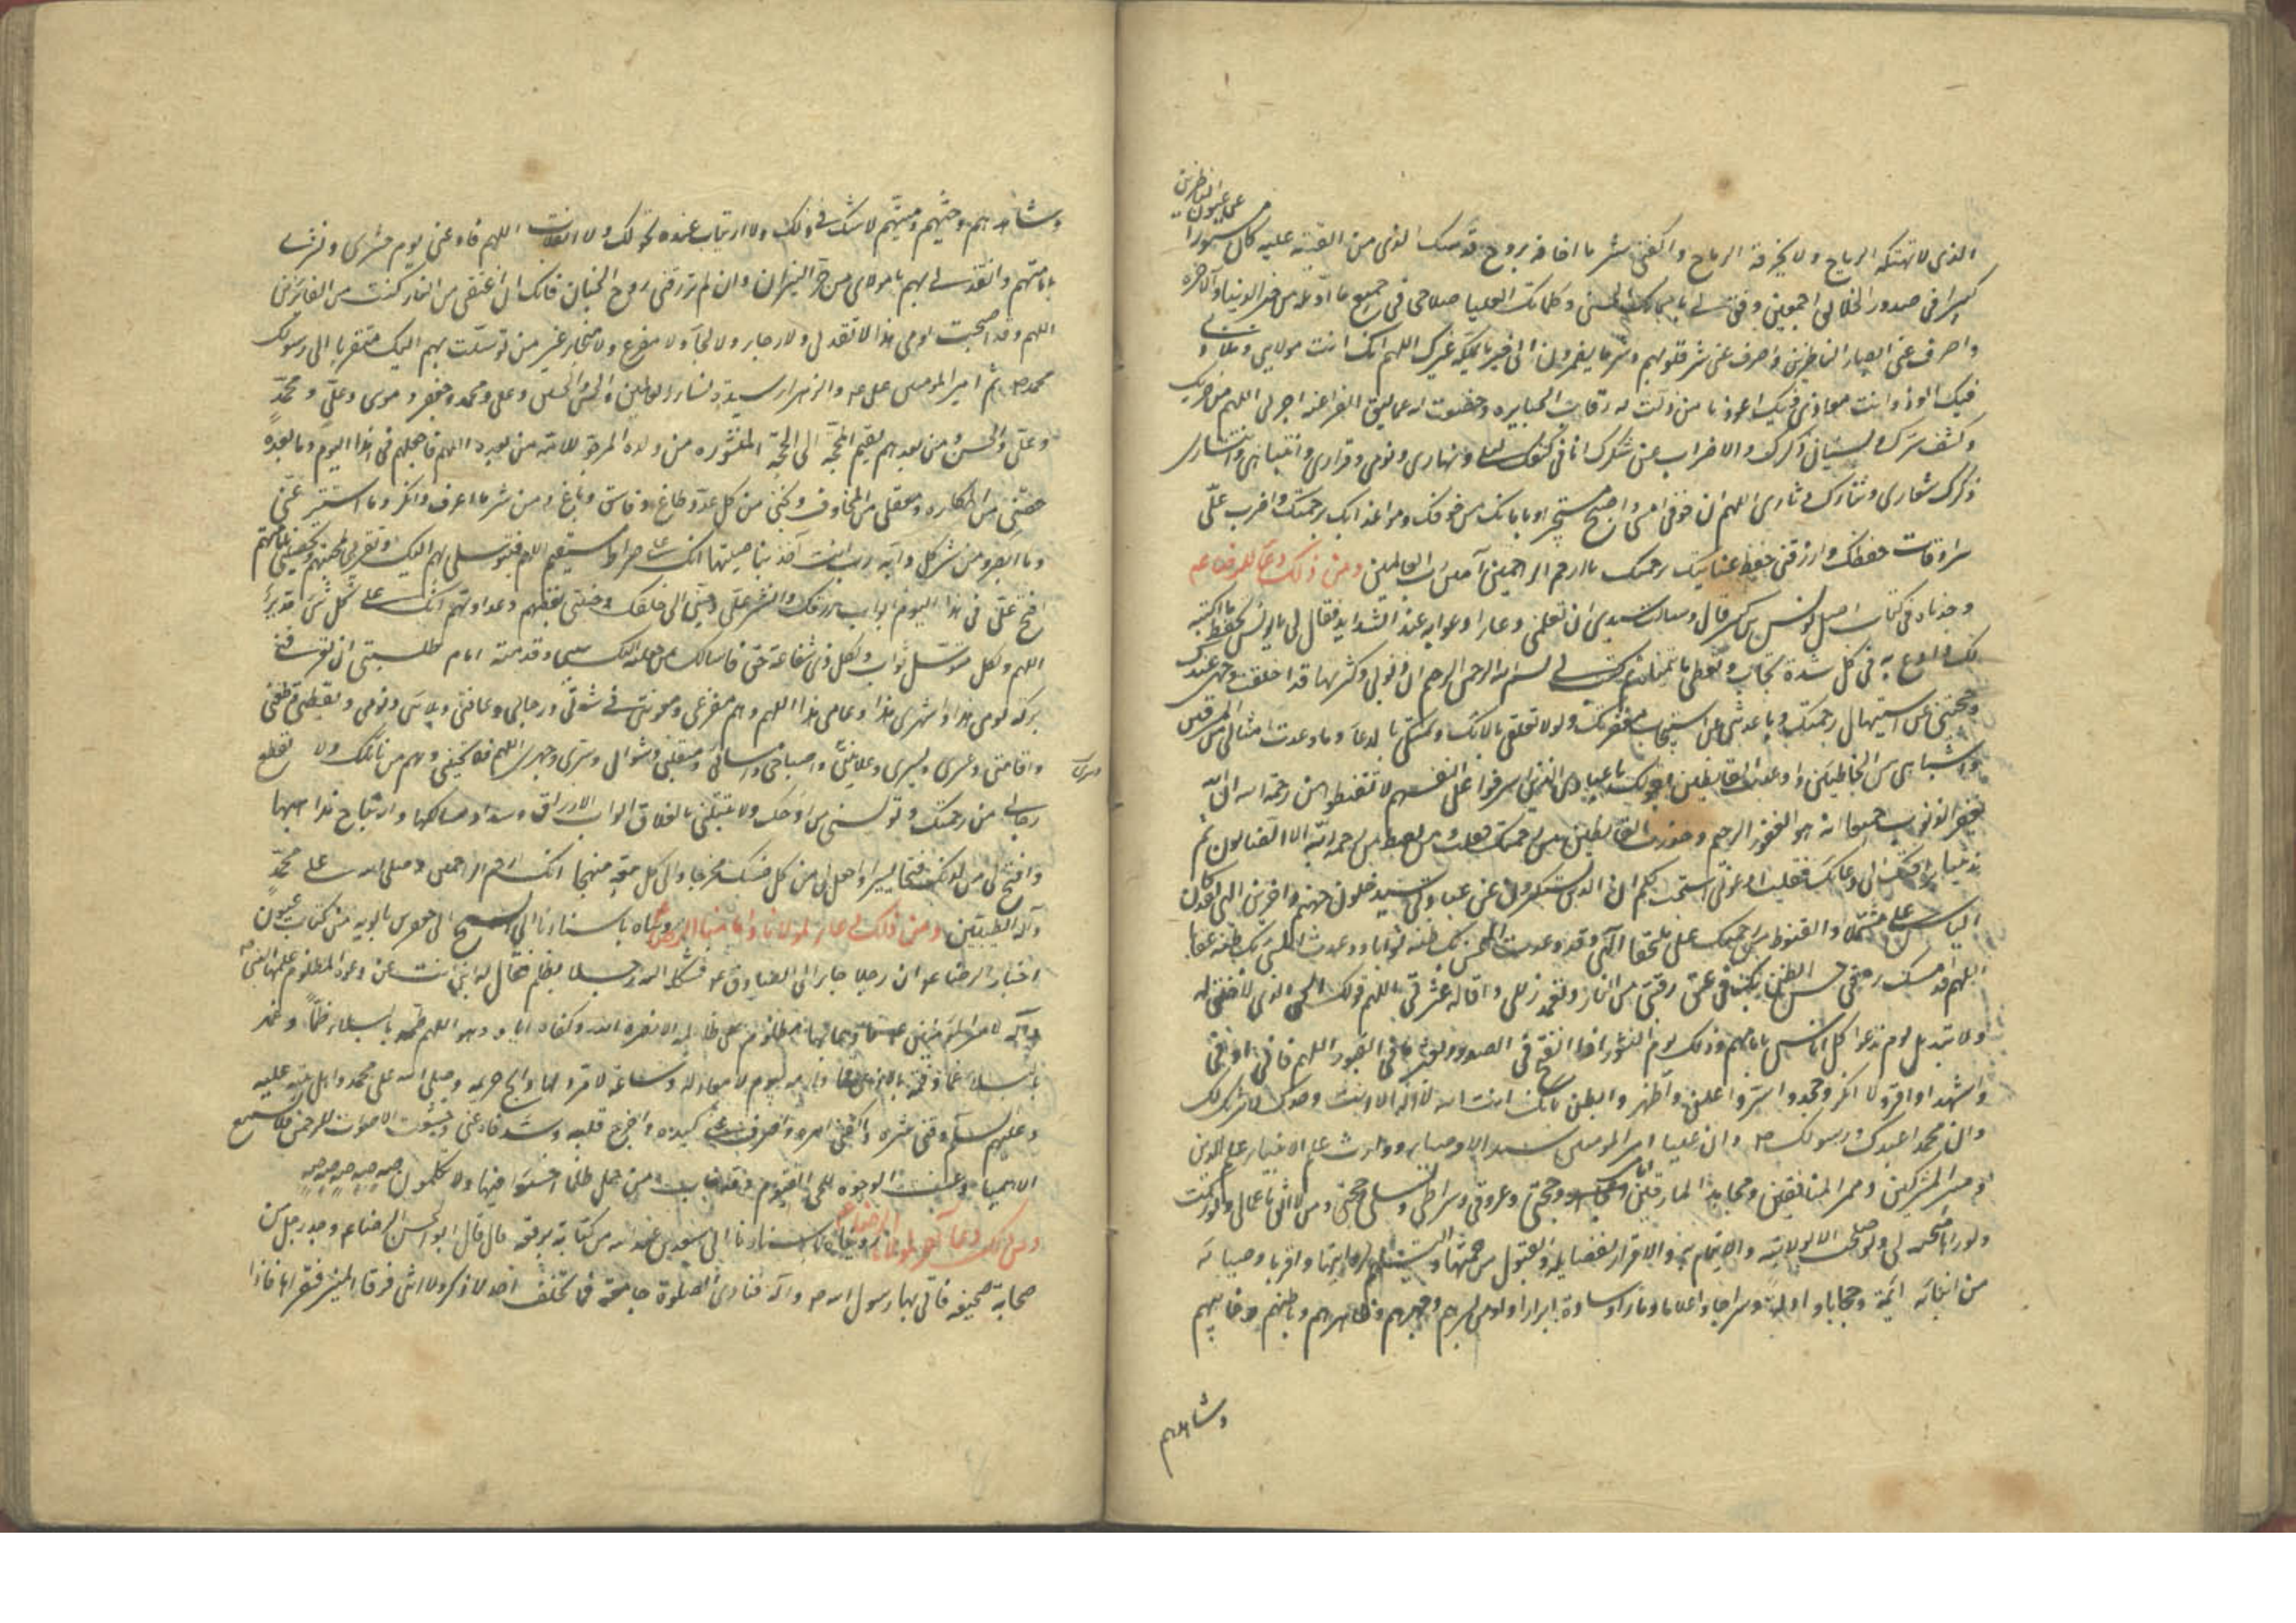 عن عيون الناظرين
الذي لا تهتكه الرياح ولا تخرقه الرماح واكفني شر ما اخافه بروح قدسك الذي من القيته عليه كان مستورا
كبيرا في صدور الخلائق اجمعين ووفق لي باسمائك الحسنى وكلماتك العليا صلاحي في جميع ما اؤمله من خير الدنيا والآخره
واصرف عني ابصار الناظرين واصرف عني شر قلوبهم وشر ما يضمرون الى خير ما لا يملكه غيرك اللهم انك انت مولاي وملاذي
فبك الوذ وانت معاذي فبك اعوذ يا من ذلت له رقاب الجبابره وخضعت له عماليق الفراعنه اجرني اللهم من خزيك
وكشف سترك ونسيان ذكرك والاضراب عن شكرك انا في كنفك ليلي ونهاري ونومي وقراري وانتباهي وانتشاري
ذكرك شعاري وثناؤك دثاري اللهم ان خوفي امسى واصبح مستجيرا بامانك من خوفك ومن عذابك برحمتك واضرب علي
سرادقات حفظك وارزقني حفظ عنايتك برحمتك يا ارحم الراحمين آمين رب العالمين ومن ذلك دعاء للرضا ع
وجدناه في كتاب اصل يونس بن بكير قال وسالت سيدي ان تعلمني دعاء ادعو به عند الشدايد فقال لي يا يونس تحفظ ما اكتبه
لك وادع به في كل شدة تجاب وتعطى ما تتمناه ثم كتب لي بسم الله الرحمن الرحيم ان ذنوبي وكثرتها قد اخلقت وجهي عندك
وحجبتني عن استيهال رحمتك وباعدتني عن استيجاب مغفرتك ولولا تعلقي بآلائك وتمسكي بالدعاء وما وعدت امثالي من المسرفين
واشباهي من الخاطئين واوعدت القانطين بقولك يا عبادي الذين اسرفوا على انفسهم لا تقنطوا من رحمة الله ان الله
يغفر الذنوب جميعا انه هو الغفور الرحيم وحذرت القانطين من رحمتك فقلت ومن يقنط من رحمة ربه الا الضالون ثم
ندبتنا برافتك الى دعائك فقلت ادعوني استجب لكم ان الذين يستكبرون عن عبادتي سيدخلون جهنم داخرين الهي لقد كان
الياس علي مشتملا والقنوط من رحمتك علي ملتحفا الهي وقد وعدت المحسن بك ظنه ثوابا ووعدت المسيء بك ظنه عقابا
اللهم قد امسك رمقي حسن الظن بك في عتق رقبتي من النار وتغمد زللي واقالة عثرتي اللهم قولك الحق الذي لا خلف له
ولا تبديل يوم ندعوا كل اناس بامامهم وذلك يوم النشور اذا نفخ في الصور وبعثر ما في القبور اللهم فاني اوفي
واشهد واقر ولا انكر ولا اجحد واسر واعلن واظهر وابطن بانك انت الله لا اله الا انت وحدك لا شريك لك
وان محمدا عبدك ورسولك ص وان عليا امير المومنين سيد الاوصياء ووارث علم الانبياء علم الدين
ومبير المشركين ومميز المنافقين ومجاهد المارقين امامي وحجتي وعروتي وصراطي ودليلي ومحجتي ومن لا اثق باعمالي ولو زكت
ولا اراها منجية لي ولو صلحت الا بولايته والايتمام به والاقرار بفضايله والقبول من حملتها والتسليم لرواتها واقر باوصيائه
من ابنائه ائمة وحججا وادلة وسرجا واعلاما ومنارا وسادة ابرارا واومن بسرهم وجهرهم وظاهرهم وباطنهم وغائبهم
وشاهدهم
وشاهدهم وحيهم وميتهم لا شك في ذلك ولا ارتياب عنده لتحولك ولا انقلاب اللهم فادعني يوم حشري ونشري
بامامتهم وانقذني بهم يا مولاي من حر النيران وان لم ترزقني روح الجنان فانك ان اعتقتني من النار كنت من الفائزين
اللهم وقد اصبحت يومي هذا لا ثقة لي ولا رجاء ولا لجأ ولا مفزع ولا منجا غير من توسلت بهم اليك متقربا الى رسولك
محمد ص ثم امير المومنين علي ع والزهراء سيدة نساء العالمين والحسن والحسين وعلي ومحمد وجعفر وموسى وعلي ومحمد
وعلي والحسن ومن بعدهم يقيم المحجة الى الحجة المنشوره من ولده المرجو للامة من بعده اللهم فاجعلهم في هذا اليوم وما بعده
حصني من المكاره ومعقلي من المخاوف ونجني من كل عدو وطاغ وفاسق وباغ ومن شر ما اعرف وانكر وما استتر عني
وما ابصر ومن شر كل دابه رب انت آخذ بناصيتها انك على صراط مستقيم اللهم فبتوسلي بهم اليك وتقربي بمحبتهم وتحصني بامامتهم
افتح علي في هذا اليوم ابواب رزقك وانشر علي رحمتك وحببني الى خلقك وجنبني بغضهم وعداوتهم انك على كل شيء قدير
اللهم ولكل متوسل ثواب ولكل ذي شفاعة حق فاسالك بمن جعلته اليك سببي وقدمته امام طلبتي ان تعرفني
بركة يومي هذا وشهري هذا وعامي هذا اللهم وهم مفزعي ومعونتي في شدتي ورخائي وعافيتي وبلائي ونومي ويقظتي وظعني
واقامتي وعسري ويسري وعلانيتي واصباحي وامسائي ومنقلبي ومثواي وسري وجهري اللهم فلا تخيبني بهم من نائلك ولا تقطع
رجائي من رحمتك ولا تؤيسني من روحك ولا تبتلني بانغلاق ابواب الارزاق وانسداد مسالكها وارتتاج مذاهبها
وافتح لي من لدنك فتحا يسيرا واجعل لي من كل ضنك مخرجا والى كل سعة منهجا انك ارحم الراحمين وصلى الله على محمد
وآله الطيبين ومن ذلك دعاء لمولانا وامامنا الرضا ع رويناه باسنادنا الى الشيخ ابي جعفر بن بابويه من كتاب عيون
اخبار الرضا ع ان رجلا جاء الى الصادق ع فشكا اليه رجلا يظلمه فقال له اين انت عن دعوة المظلوم علمها النبي ص
وآله لامير المومنين ع ما دعا بها مظلوم على ظالمه الا نصره الله وكفاه اياه وهو اللهم طمه بالبلاء طما وعمه
بالبلاء عما وقمه بالاذى قما وارمه بيوم لا معاد له وساعة لا مرد لها وابح حريمه وصل على محمد واهل بيته عليه
وعليهم السلام وقني شره واكفني امره واصرف عني كيده واجرح قلبه وسد فاه عني وخشعت الاصوات للرحمن فلا تسمع
الا همسا وعنت الوجوه للحي القيوم وقد خاب من حمل ظلما اخسئوا فيها ولا تكلمون صه صه صه صه صه
ومن ذلك دعاء آخر لمولانا الرضا ع رويناه باسنادنا الى سعد بن عبد الله من كتابه يرفعه قال قال ابو الحسن الرضا ع وجد رجل من
صحابة صحيفه فاتى بها رسول الله ص وآله فنادى الصلوة جامعة فما تخلف احد لا ذكر ولا انثى فرقا المنبر فقرأها فاذا